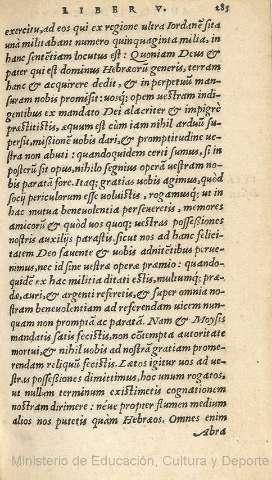 LIBER V. 285
exercitu, ad eos qui ex regione ultra Iordanẽ sita
unà militabant numero quinquaginta milia, in
hanc sentẽtiam locutus est: Quoniam Deus &
pater qui est dominus Hebræorũ generis, terram
hanc & acquirere dedit, & in perpetuũ man-
suram nobis promisit: uosq; opem uestram indi-
gentibus ex mandato Dei alacriter & impigrè
præstitistis, æquum est cùm iam nihil arduũ su-
persit, missionẽ uobis dari, & promptitudine ue-
stra non abuti: quandoquidem certi sumus, si in
posterũ sit opus, nihilo segnius operã uestram no-
bis paratã fore. Itaq; gratias uobis agimus, quòd
socij periculorum esse uoluistis, rogamusq; ut in
hac mutua beneuolentia perseueretis, memores
amicorũ & quòd uos quoq; uestras possessiones
nostris auxilijs parastis, sicut nos ad hanc felici-
tatem Deo fauente & uobis adnitẽtibus perue-
nimus, nec id sine uestræ operæ præmio: quando-
quidẽ ex hac militia ditati estis, multumq; præ-
dæ, auri, & argenti referetis, & super omnia no-
stram beneuolentiam ad referendam uicem nun-
quam non promptã ac paratã. Nam & Moysis
mandatis satis fecistis, non cõtempta autoritate
mortui, & nihil uobis ad nostrã gratiam prome-
rendam reliquũ fecistis. Lætos igitur uos ad ue-
stras possessiones dimittimus, hoc unum rogatos,
ut nullam terminum existimetis cognationem
nostram dirimere: néue propter flumen medium
alios nos putetis quam Hebræos. Omnes enim
Abra
Ministerio de Educación, Cultura y Deporte